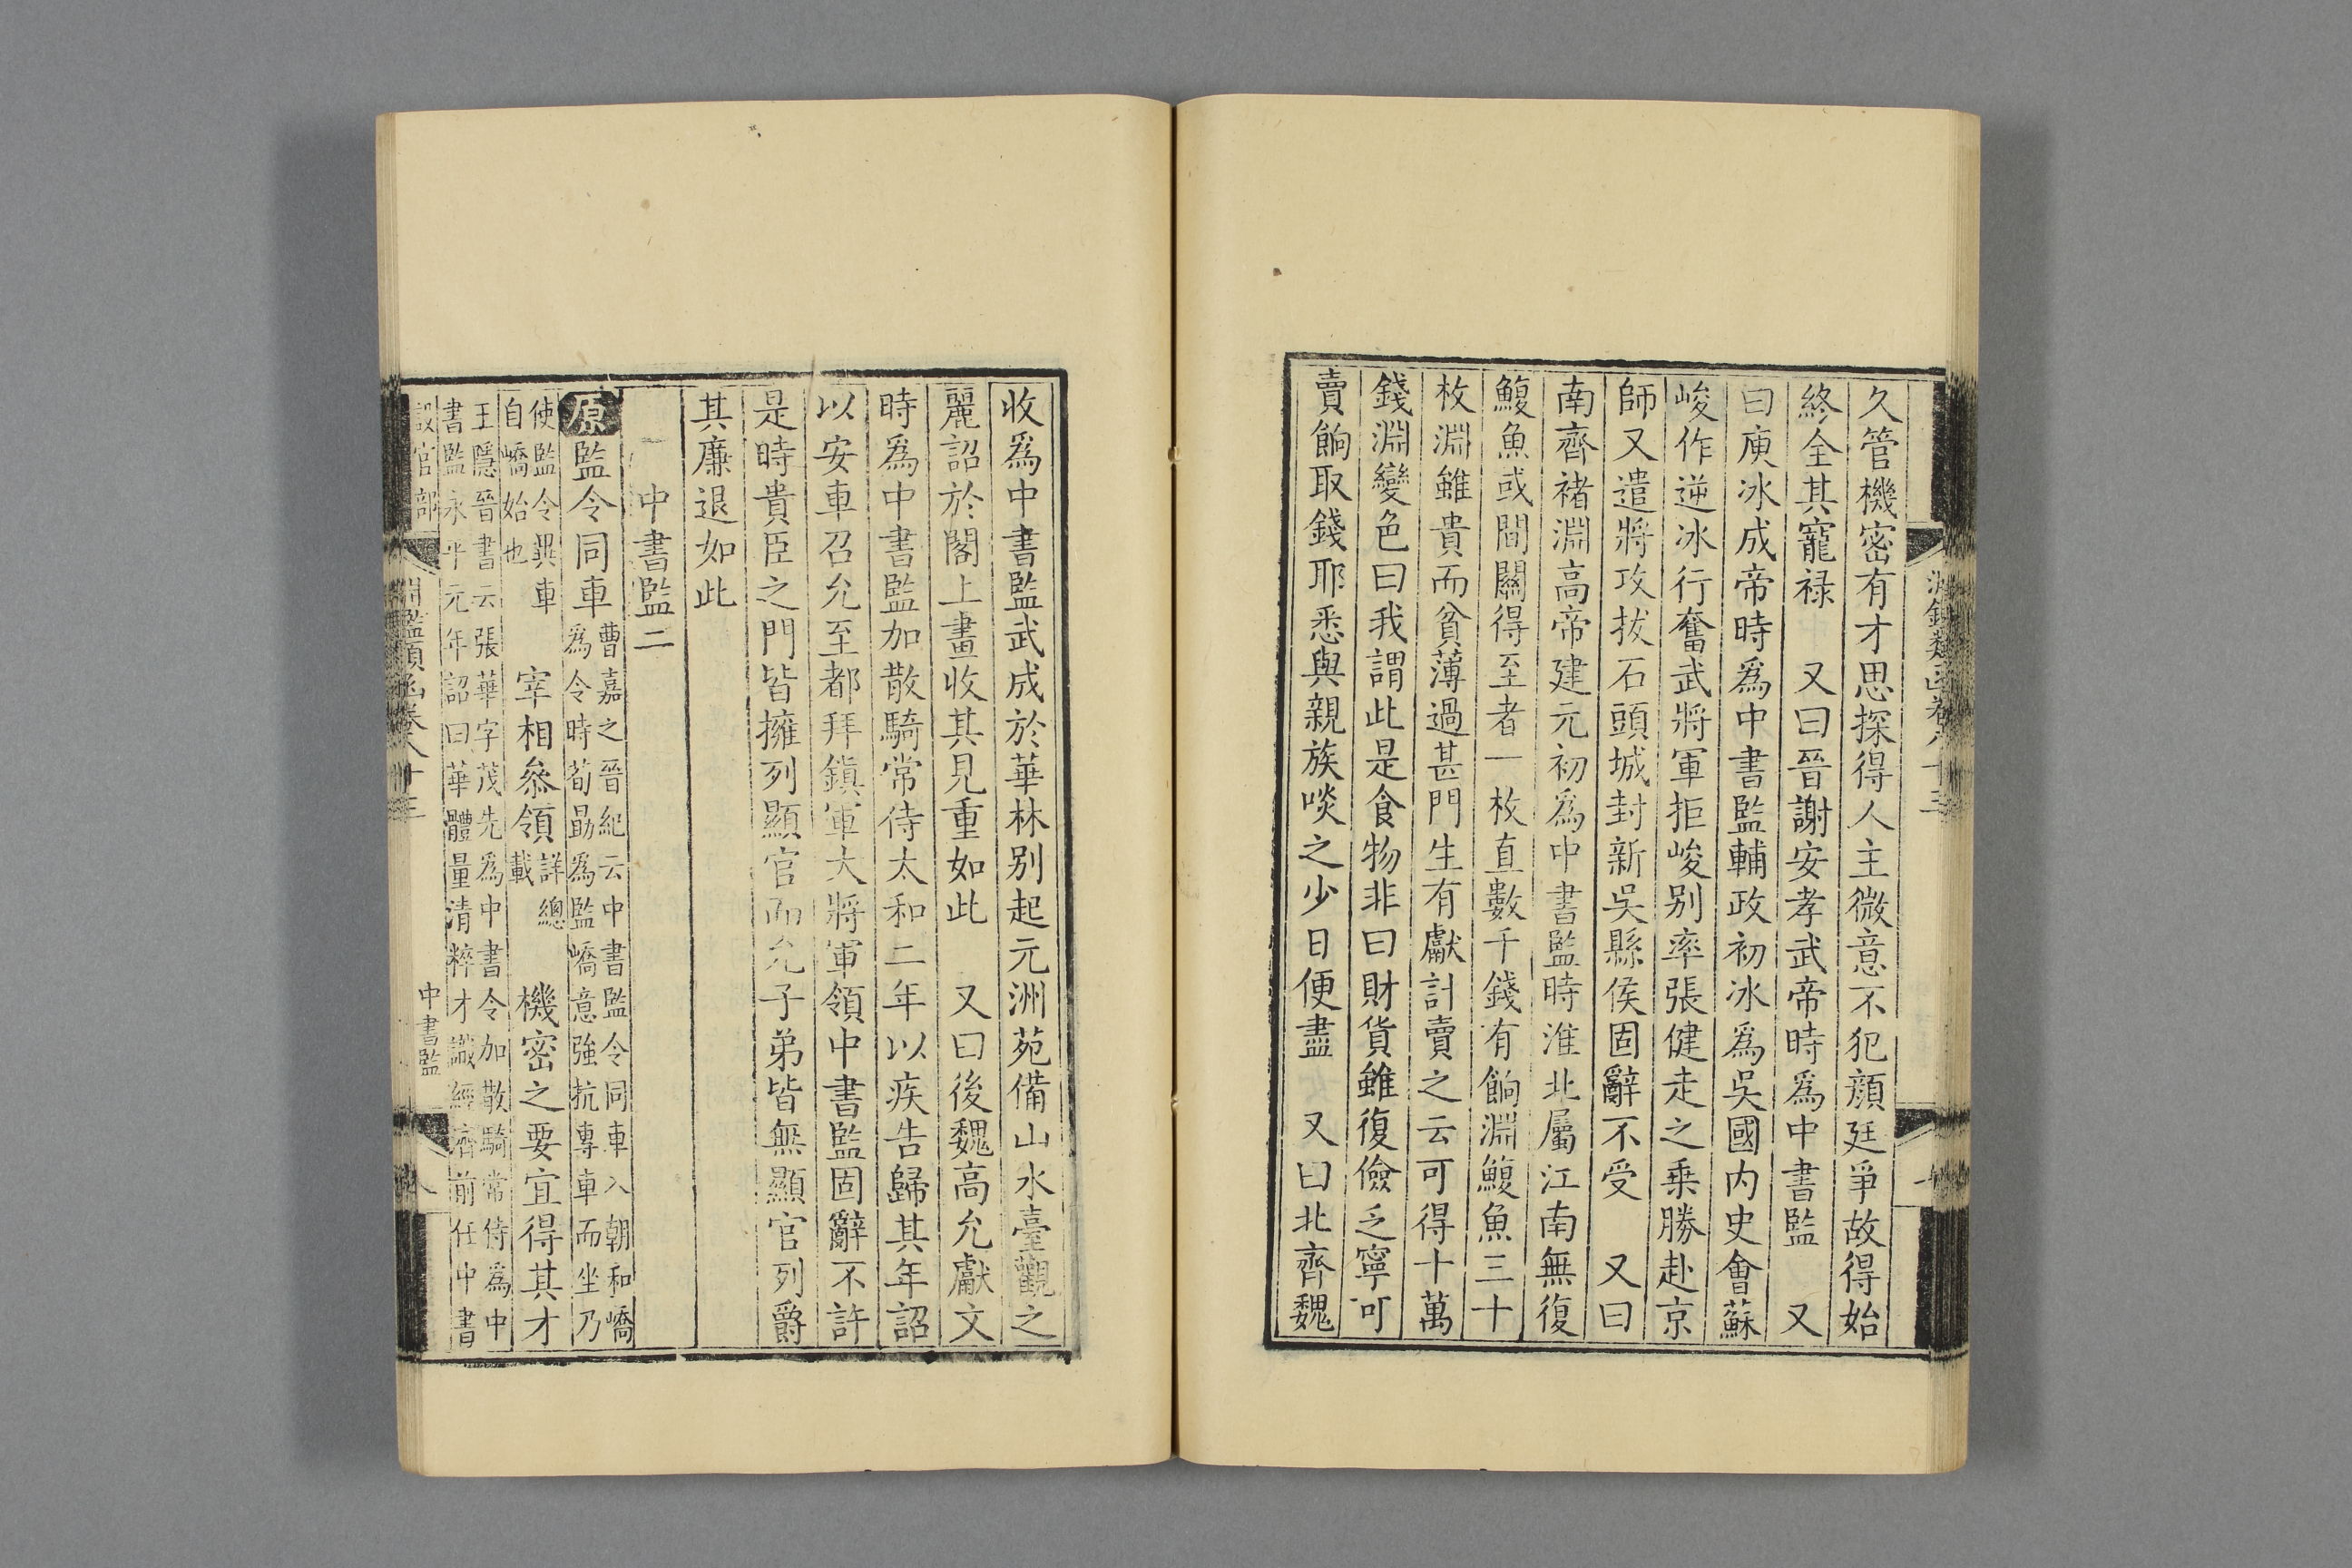 久管機密有才思探得人主微意不犯顏廷爭故得始
終全其寵祿　又曰晉謝安孝武帝時爲中書監　又
曰庾冰成帝時爲中書監輔政初冰爲吳國内史會蘇
峻作逆冰行奮武將軍拒峻别率張健走之乗勝赴京
師又遣將攻拔石頭城封新吳縣侯固辭不受　又曰
南齊褚淵高帝建元初爲中書監時淮北屬江南無復
鰒魚或間關得至者一枚直數千錢有餉淵鰒魚三十
枚淵雖貴而貧薄過甚門生有獻計賣之云可得十萬
錢淵變色曰我謂此是食物非曰財貨雖復儉乏寧可
賣餉取錢耶悉與親族啖之少日便盡　又曰北齊魏
收爲中書監武成於華林别起元洲苑備山水臺觀之
麗詔於閣上畫收其見重如此　又曰後魏高允獻文
時爲中書監加散騎常侍太和二年以疾告歸其年詔
以安車召允至都拜鎮軍大將軍領中書監固辭不許
是時貴臣之門皆擁列顯官而允子弟皆無顯官列爵
其廉退如此
中書監二
原監令同車曹嘉之晉紀云中書監令同車入朝和嶠
爲令時荀勗爲監嶠意強抗專車而坐乃
使監令異車
自嶠始也
宰相叅領詳總
載
機密之要宜得其才
王隱晉書云張華字茂先爲中書令加散騎常侍爲中
書監永平元年詔曰華體量清粹才識經濟前任中書
設官部
淵鑑類函卷八十三
中書監
八